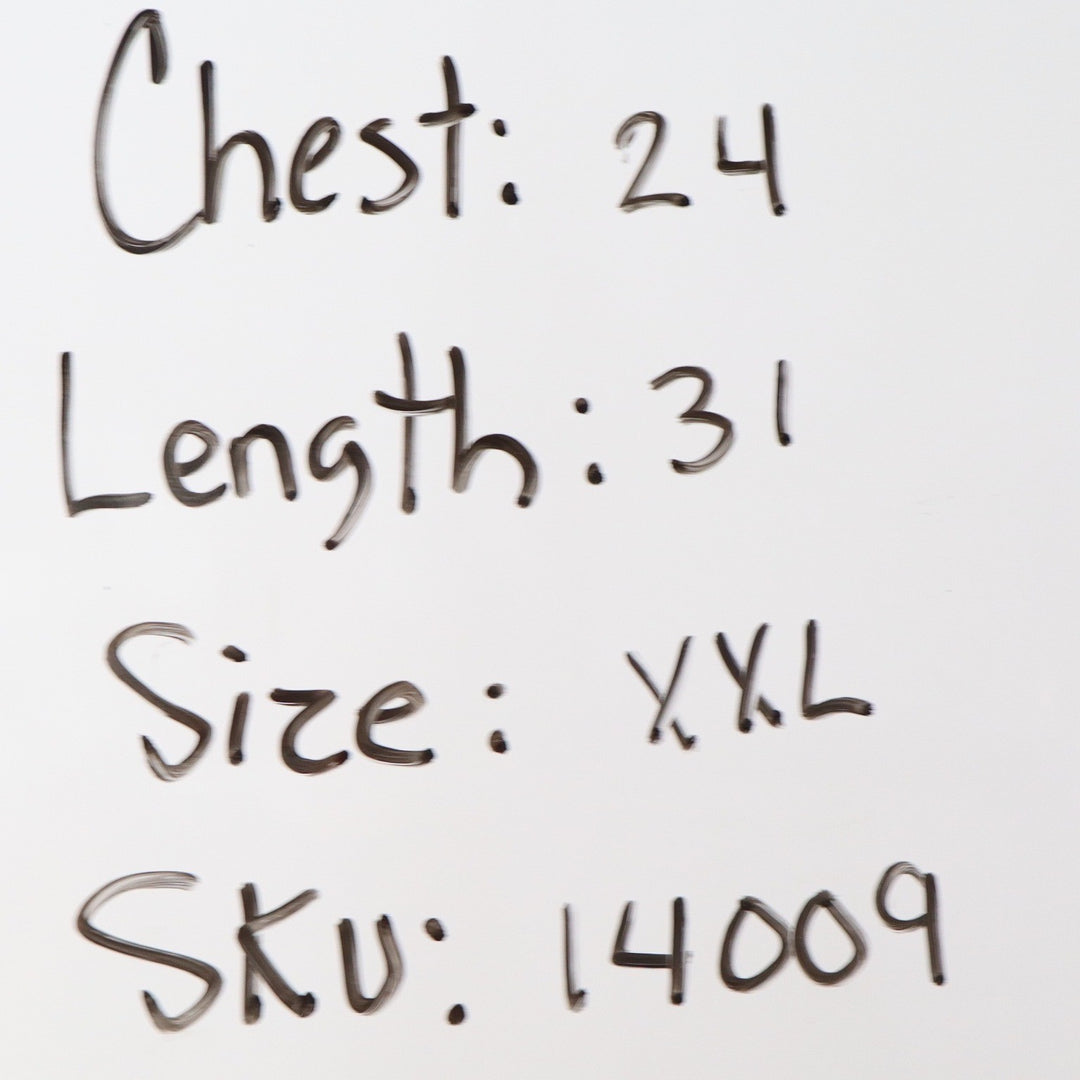 Chest: 24
Length: 31
Size: XXL
SKU: 14009